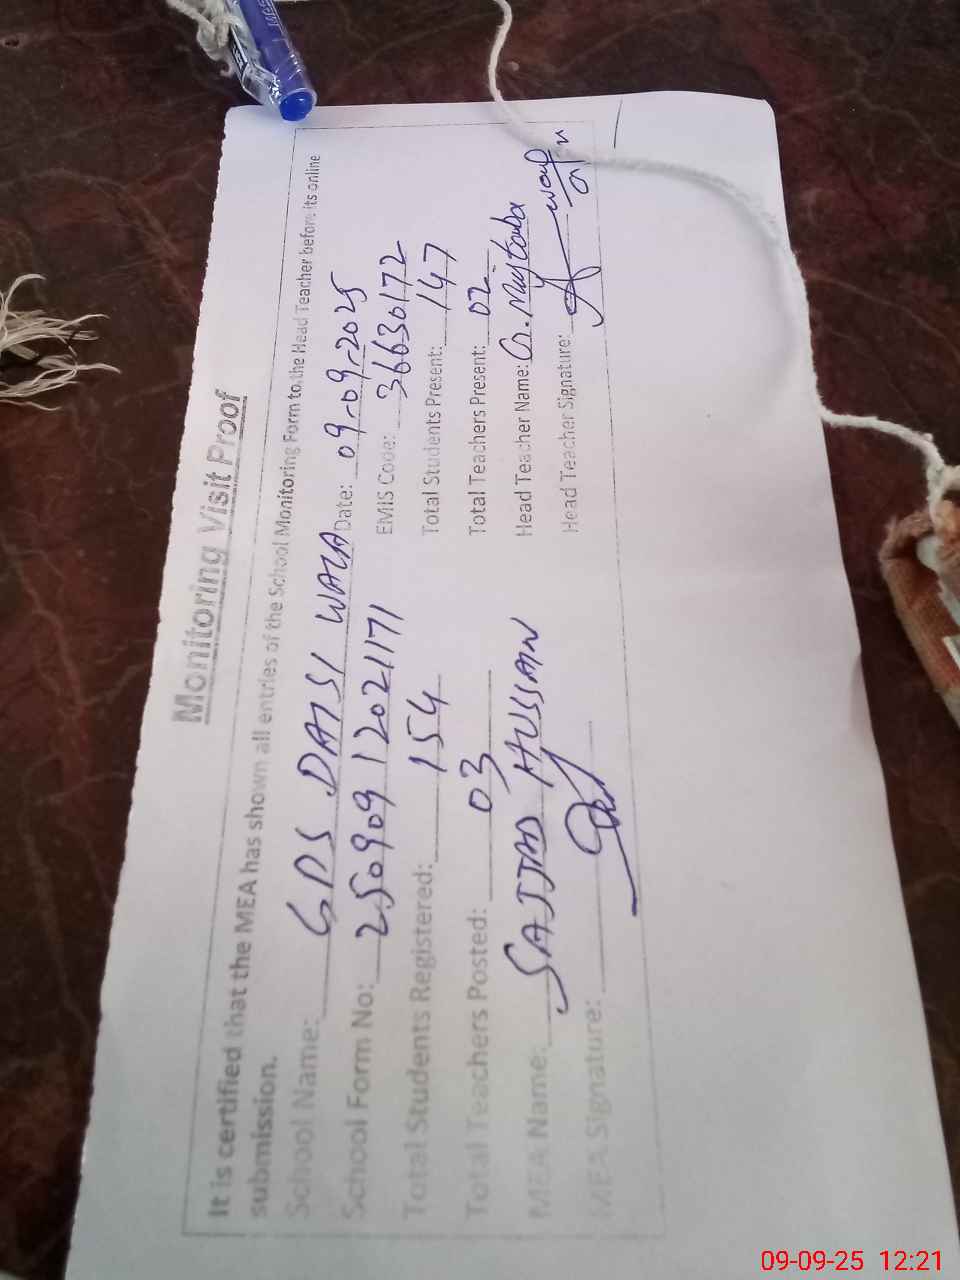 Monitoring Visit Proof
It is certified that the MEA has shown all entries of the School Monitoring Form to the Head Teacher before its online
submission.
School Name: GPS DAISI WALA Date: 09-09-2025
School Form No: 25090912021171 EMIS Code: 36630172
Total Students Registered: 154 Total Students Present: 147
Total Teachers Posted: 03 Total Teachers Present: 02
MEA Name: SAJJAD HUSSAIN Head Teacher Name: G. Mujtaba
MEA Signature: Head Teacher Signature:
09-09-25 12:21